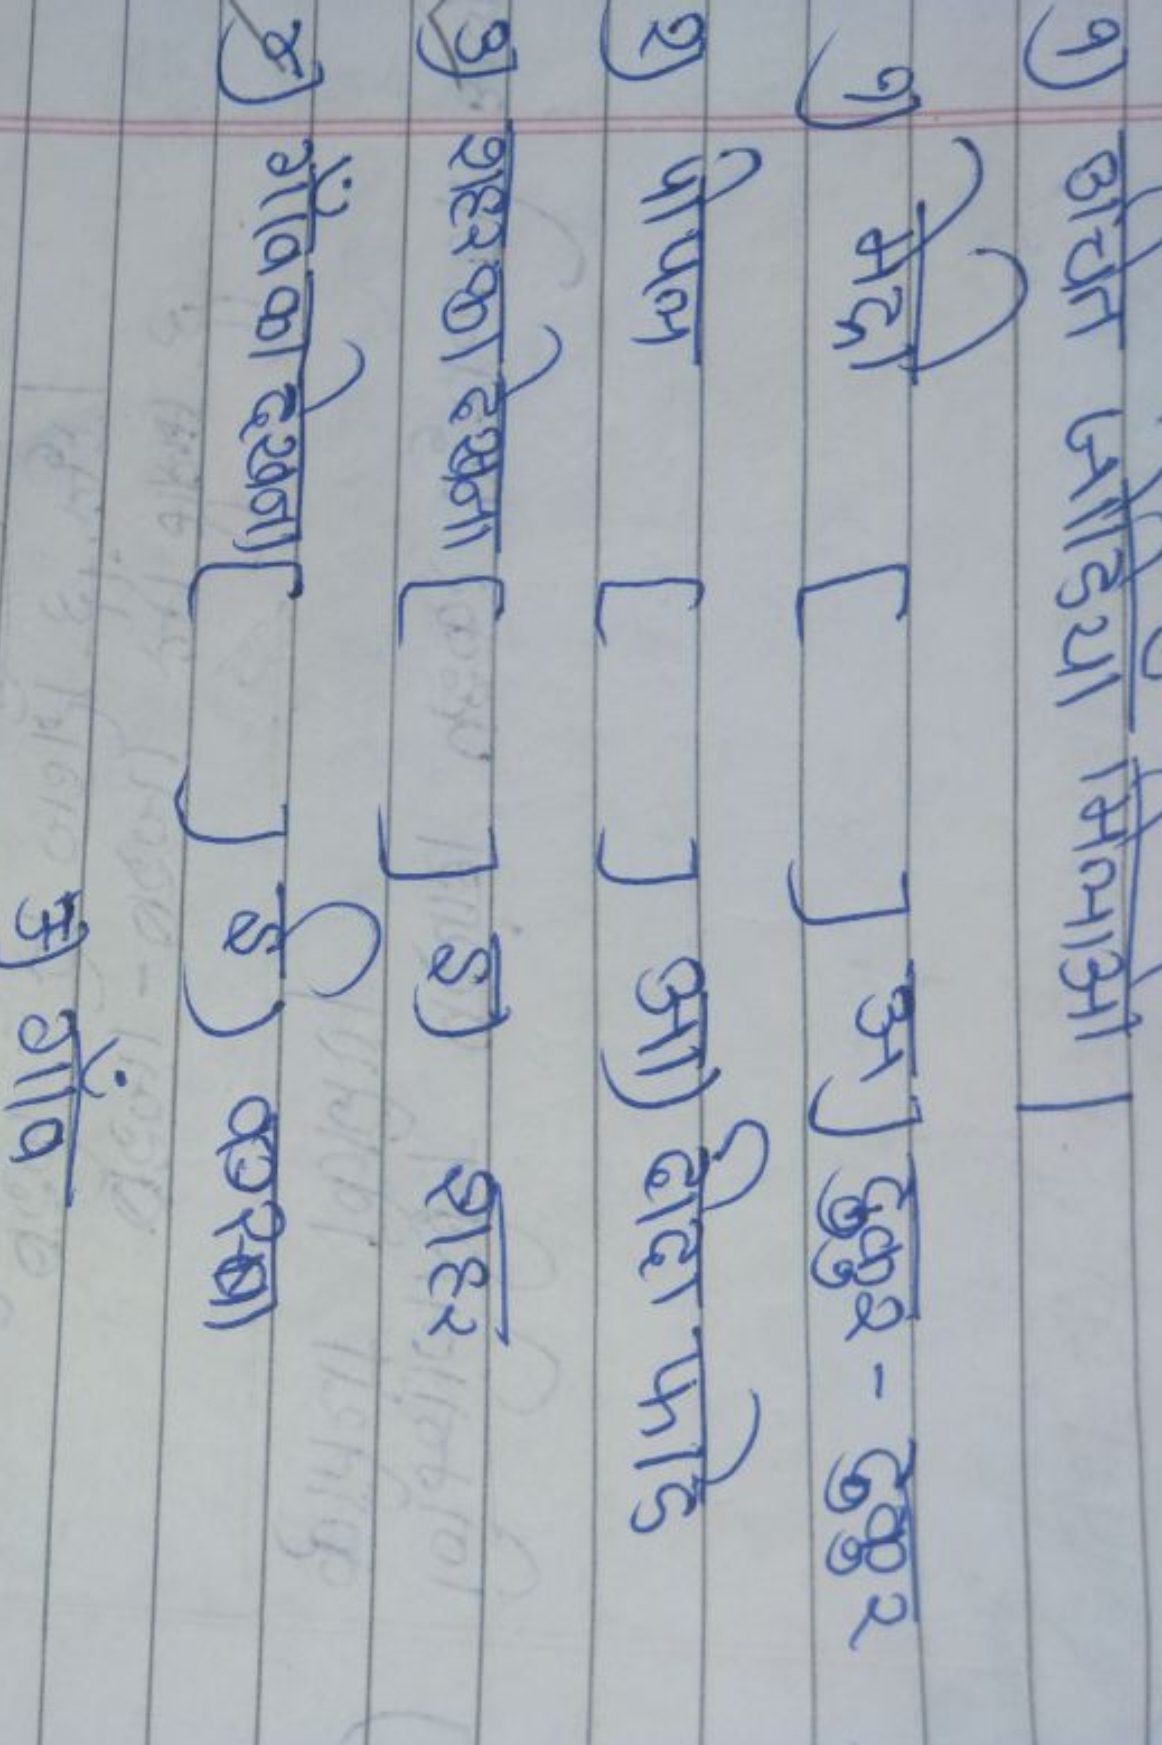 १) उचित जोडिया मिलाओ।
१) मेंढ़ी [ ] अ) टुकुर - टुकुर
२) पीपल [ ] आ) हीरा फोड
३) शहर को देखना [ ] इ) शहर
४) गाँव को देखना [ ] ई) करखा
उ) गाँव